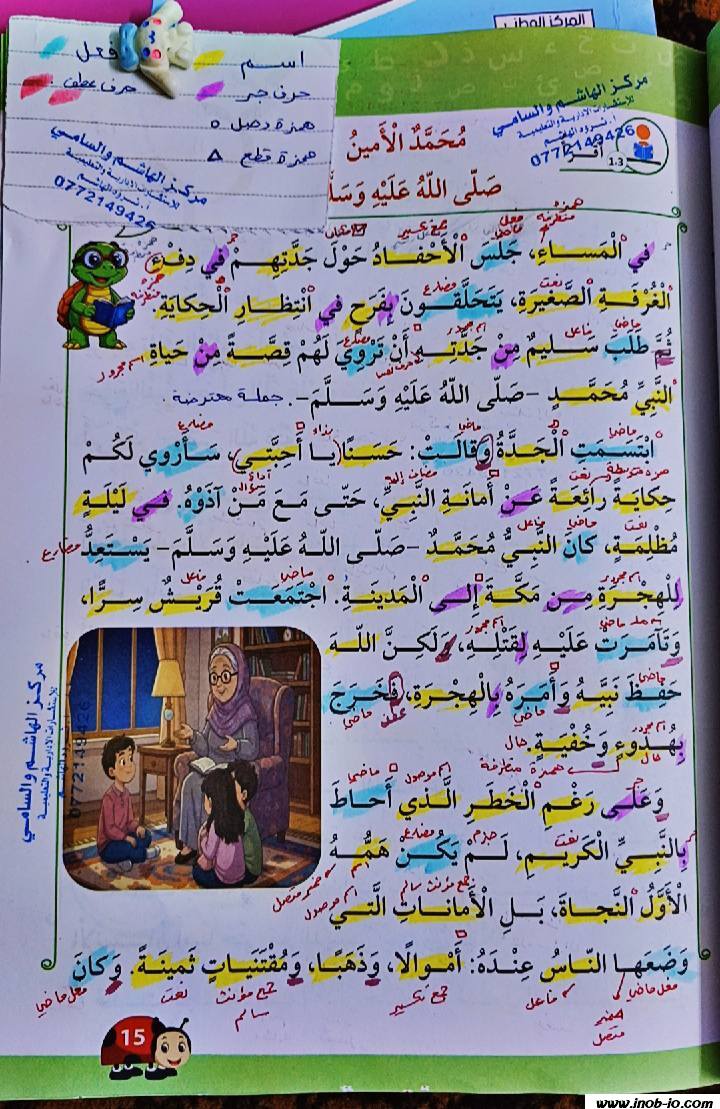 المركز الوطني
اسم
فعل
حرف جر
حرف عطف
همزة وصل
همزة قطع
مركز الهاشم والسامي
للاستشارات الادارية والتعليمية
0772149426
مركز الهاشم والسامي
للاستشارات الادارية والتعليمية
0772149426
1.3
أقرأ
مُحَمَّدٌ الْأَمينُ
صَلّى اللهُ عَلَيْهِ وَسَلَّ
في الْمَساءِ، جَلَسَ الْأَحْفادُ حَوْلَ جَدَّتِهِمْ في دِفْءِ
الْغُرْفَةِ الصَّغيرَةِ، يَتَحَلَّقونَ بِفَرَحٍ في انْتِظارِ الْحِكايَةِ.
ثُمَّ طَلَبَ سَليمٌ مِنْ جَدَّتِهِ أَنْ تَرْوِيَ لَهُمْ قِصَّةً مِنْ حَياةِ
النَّبِيِّ مُحَمَّدٍ –صَلّى اللهُ عَلَيْهِ وَسَلَّمَ–.
ابْتَسَمَتِ الْجَدَّةُ وَقالَتْ: حَسَنًا يا أَحِبَّتي، سَأَرْوي لَكُمْ
حِكايَةً رائِعَةً عَنْ أَمانَةِ النَّبِيِّ، حَتّى مَعَ مَنْ آذَوْهُ. في لَيْلَةٍ
مُظْلِمَةٍ، كانَ النَّبِيُّ مُحَمَّدٌ –صَلّى اللهُ عَلَيْهِ وَسَلَّمَ– يَسْتَعِدُّ
لِلْهِجْرَةِ مِنْ مَكَّةَ إِلى الْمَدينَةِ. اجْتَمَعَتْ قُرَيْشٌ سِرًّا،
وَتَآمَرَتْ عَلَيْهِ لِقَتْلِهِ، وَلَكِنَّ اللهَ
حَفِظَ نَبِيَّهُ وَأَمَرَهُ بِالْهِجْرَةِ، فَخَرَجَ
بِهُدوءٍ وَخُفْيَةٍ.
وَعَلى رَغْمِ الْخَطَرِ الَّذي أَحاطَ
بِالنَّبِيِّ الْكَريمِ، لَمْ يَكُنْ هَمُّهُ
الْأَوَّلُ النَّجاةَ، بَلِ الْأَماناتِ الَّتي
وَضَعَها النّاسُ عِنْدَهُ: أَمْوالًا، وَذَهَبًا، وَمُقْتَنَياتٍ ثَمينَةً. وَكانَ
فعل ماضي
فاعل
جمع تكسير
جمع مؤنث سالم
نعت
فعل ماضي
مركز الهاشم والسامي
للاستشارات الادارية والتعليمية
0772149426
15
www.inob-io.com